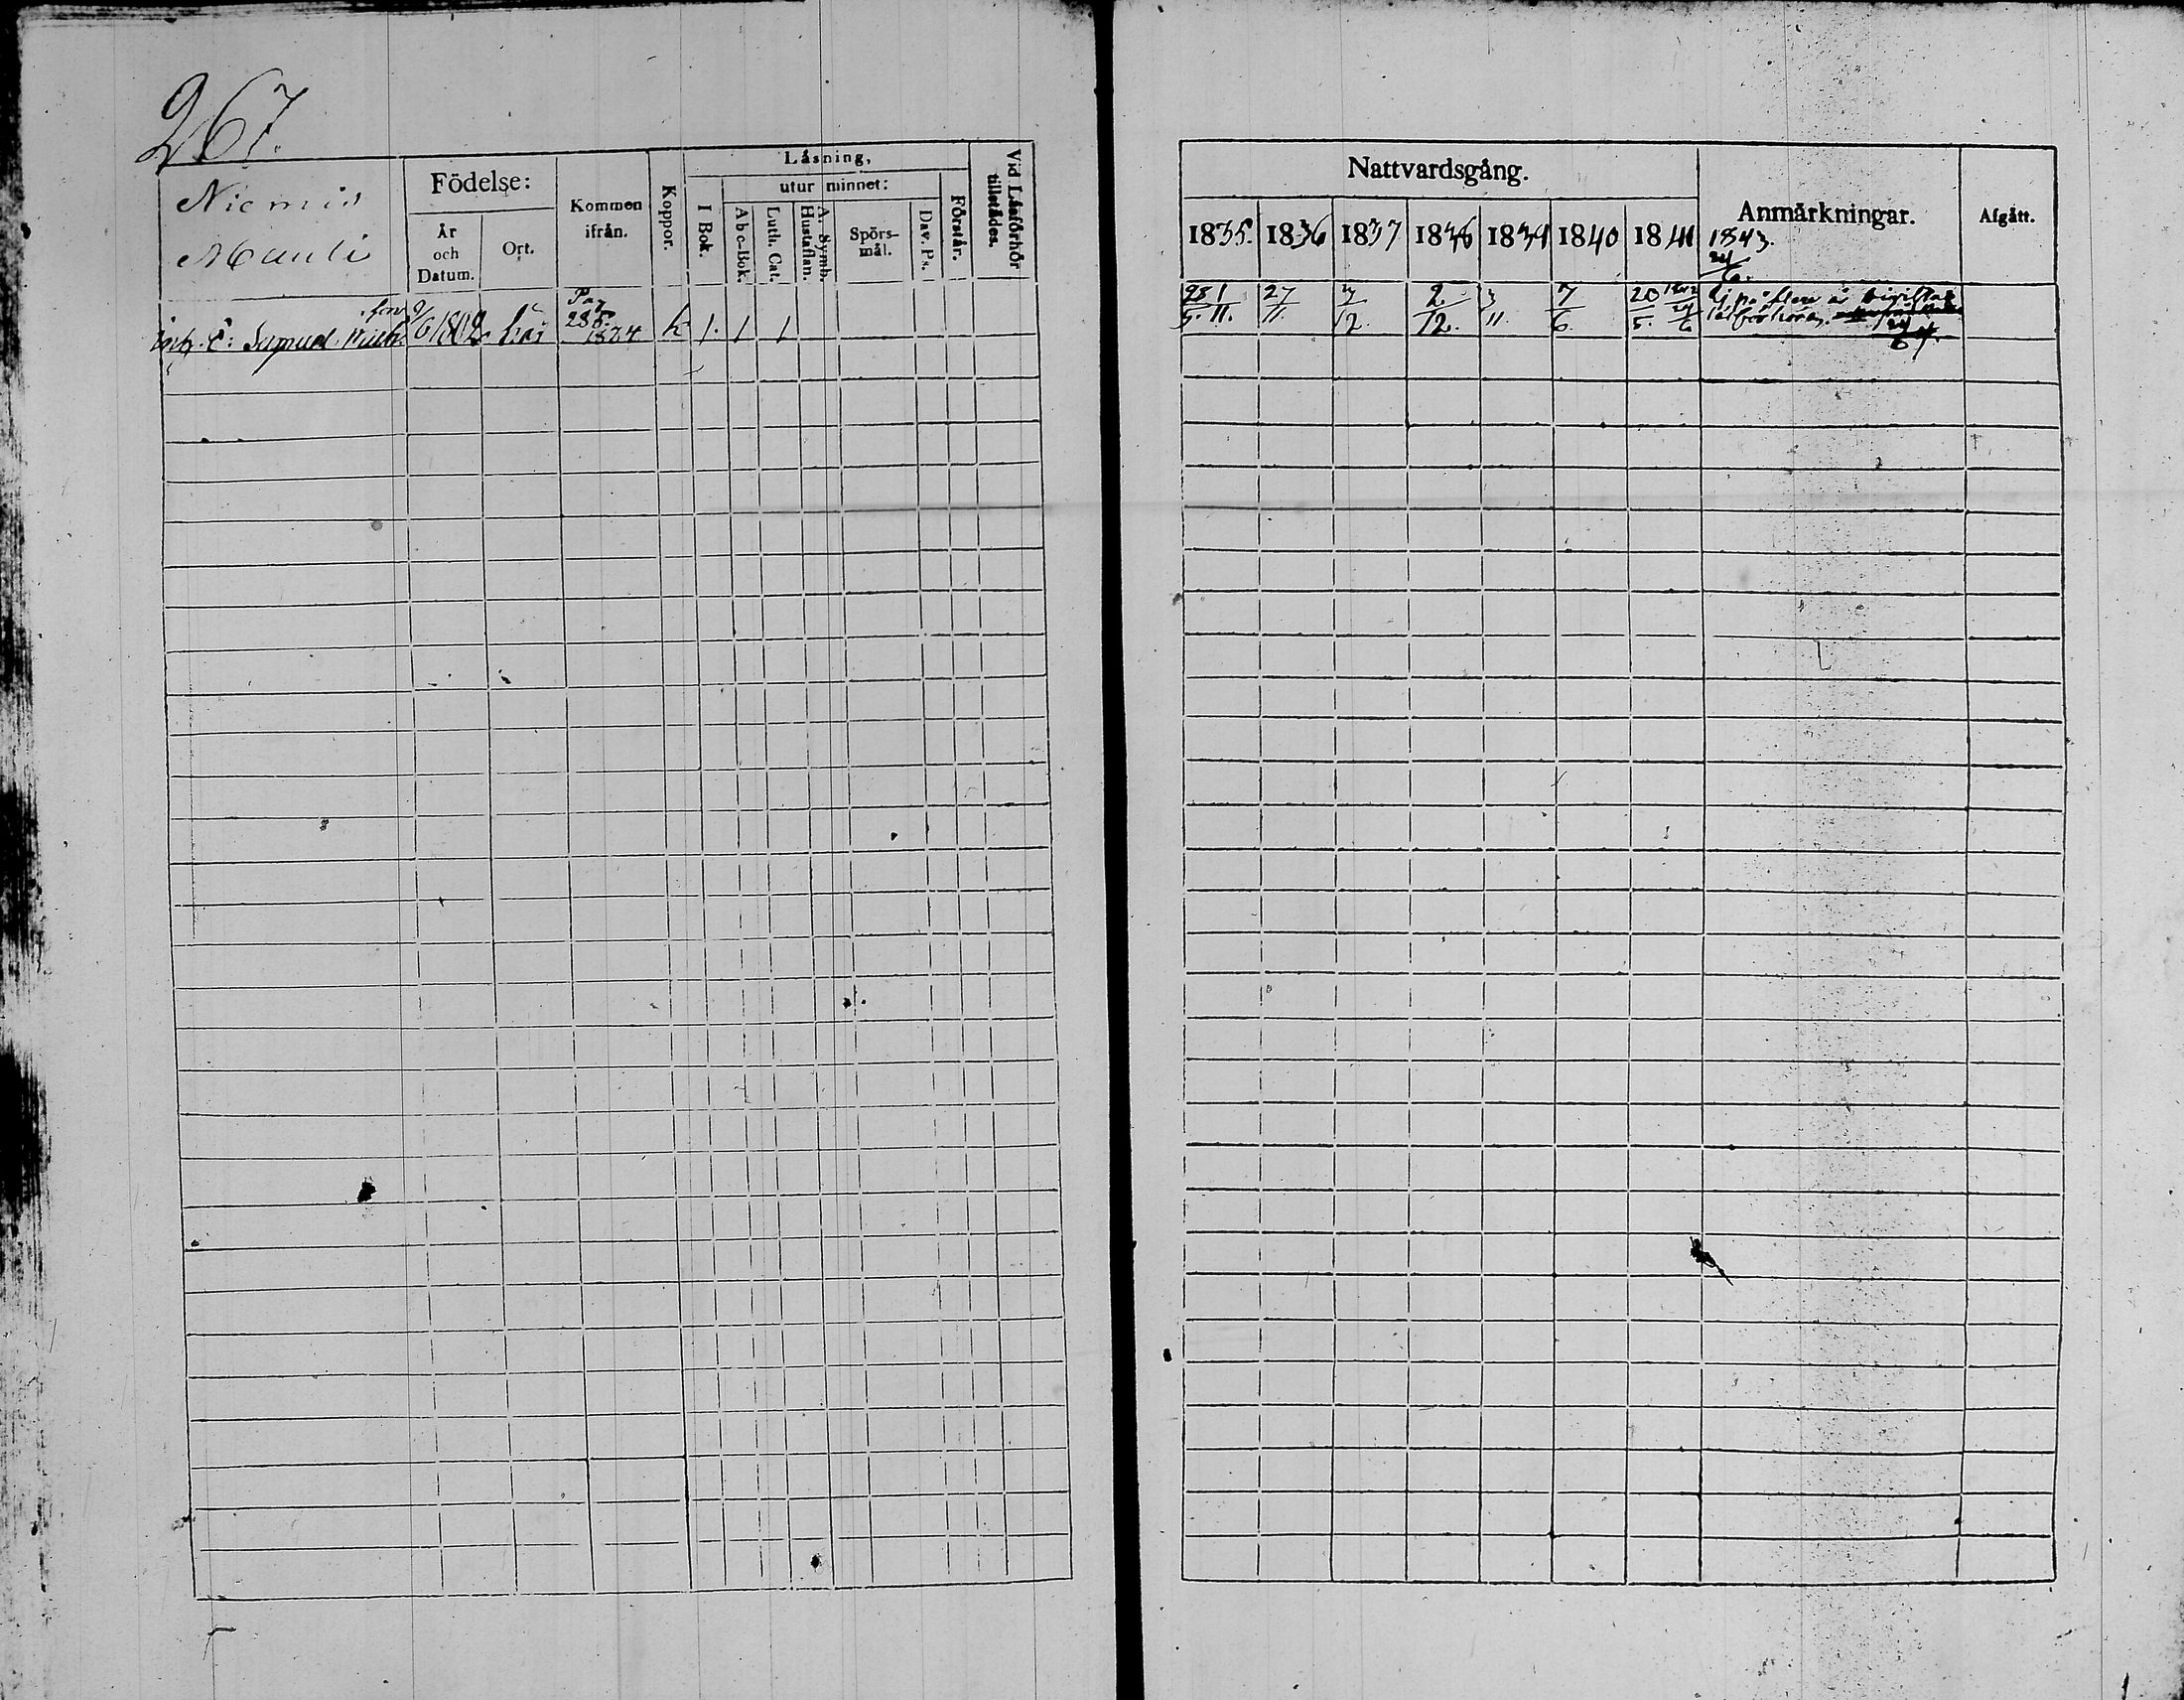 267.
Niemis
Mauli
Födelse:
År
och
Datum.
Ort.
Kommen
ifrån.
Koppor.
Låsning,
I Bok.
utur minnet:
Abc-Bok.
Luth. Cat.
A. Symb.
Hustaflan.
Spörs-
mål.
Dav. Ps.
Förstår.
Vid Låsförhör
tillstådes.
Samuel 6/1802 här 1834 k 1. 1 1
Nattvardsgång.
1835. 1836 1837 1838 1839 1840 1841
Anmärkningar.
1843.
24/6.
Afgått.
27/11. 3/12. 2./12. 3/11. 7/6. 20/5. 1842 24/6
Ej på flere år